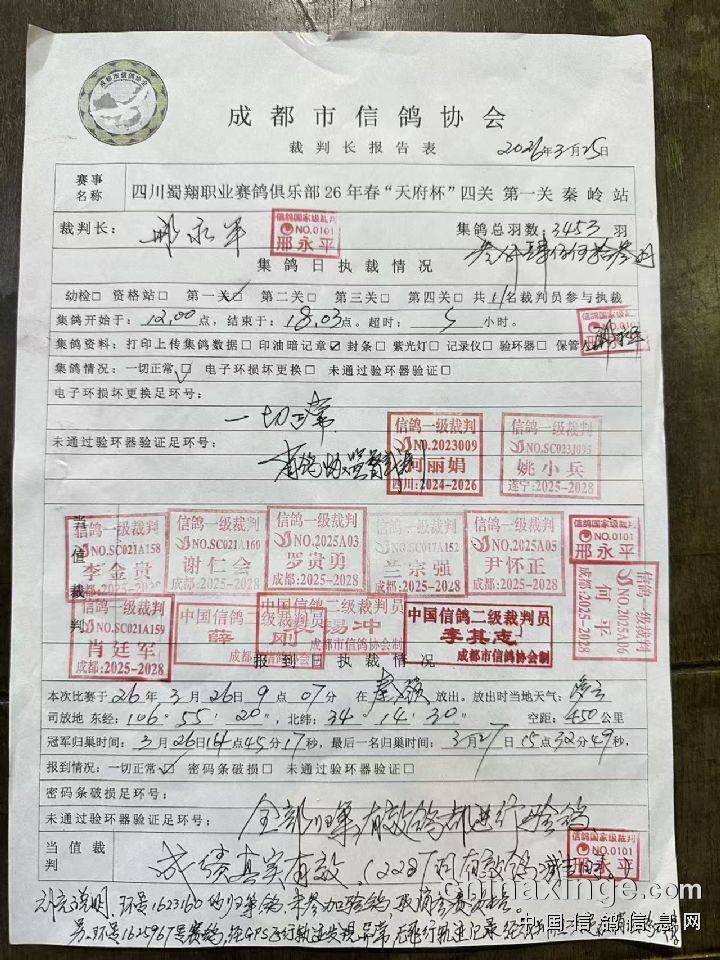 成都市信鸽协会
成都市信鸽协会
裁判长报告表
2026年3月25日
赛事名称
四川蜀翔职业赛鸽俱乐部26年春“天府杯”四关 第一关 秦岭站
裁判长：
信鸽国家级裁判
NO.0101
邢永平
集鸽总羽数 3453 羽
集鸽日执裁情况
幼检□ 资格站□ 第一关□ 第二关□ 第三关□ 第四关□ 共11名裁判员参与执裁
集鸽开始于：12.00点，结束于：18.03点。超时：5小时。
集鸽资料：打印上传集鸽数据□ 印油暗记章□ 封条□ 紫光灯□ 记录仪□ 验环器□ 保管人
信鸽国家级裁判
NO.0101
集鸽情况：一切正常□ 电子环损坏更换□ 未通过验环器验证□
电子环损坏更换足环号：
一切正常
未通过验环器验证足环号：
信鸽一级裁判
NO.2023009
何丽娟
四川：2024-2026
信鸽一级裁判
姚小兵
遂宁：2025-2028
当值裁判
信鸽一级裁判
NO.SC021A158
李金贵
成都：2025-2028
信鸽一级裁判
NO.SC021A160
谢仁会
成都：2025-2028
信鸽一级裁判
NO.2025A03
罗贵勇
成都：2025-2028
信鸽一级裁判
NO.SC017A152
宗强
成都：2025-2028
信鸽一级裁判
NO.2025A05
尹怀正
成都：2025-2028
信鸽国家级裁判
NO.0101
邢永平
信鸽一级裁判
NO.2025A06
何平
成都：2025-2028
信鸽一级裁判
NO.SC021A159
肖廷军
成都：2025-2028
中国信鸽二级裁判员
薛刚
锡冲
成都市信鸽协会制
中国信鸽二级裁判员
李其志
成都市信鸽协会制
报到日执裁情况
本次比赛于26年3月26日9点07分 在秦岭放出。放出时当地天气：
司放地 东经：106°55′20″，北纬：34°14′30″ 空距：450公里
冠军归巢时间：3月26日14点45分17秒，最后一名归巢时间：3月27日15点32分49秒，
报到情况：一切正常□ 密码条破损□ 未通过验环器验证□
密码条破损足环号：
未通过验环器验证足环号：
全部归巢有效鸽都进行验鸽
当值裁判
成绩真实有效
信鸽国家级裁判
NO.0101
补充说明，环号1623160的归巢鸽，未参加验鸽，取消参赛资格。
另，环号1625967号赛鸽，经GPS飞行轨迹发现异常，无飞行轨迹记录
chinaxinge.com
中国信鸽信息网